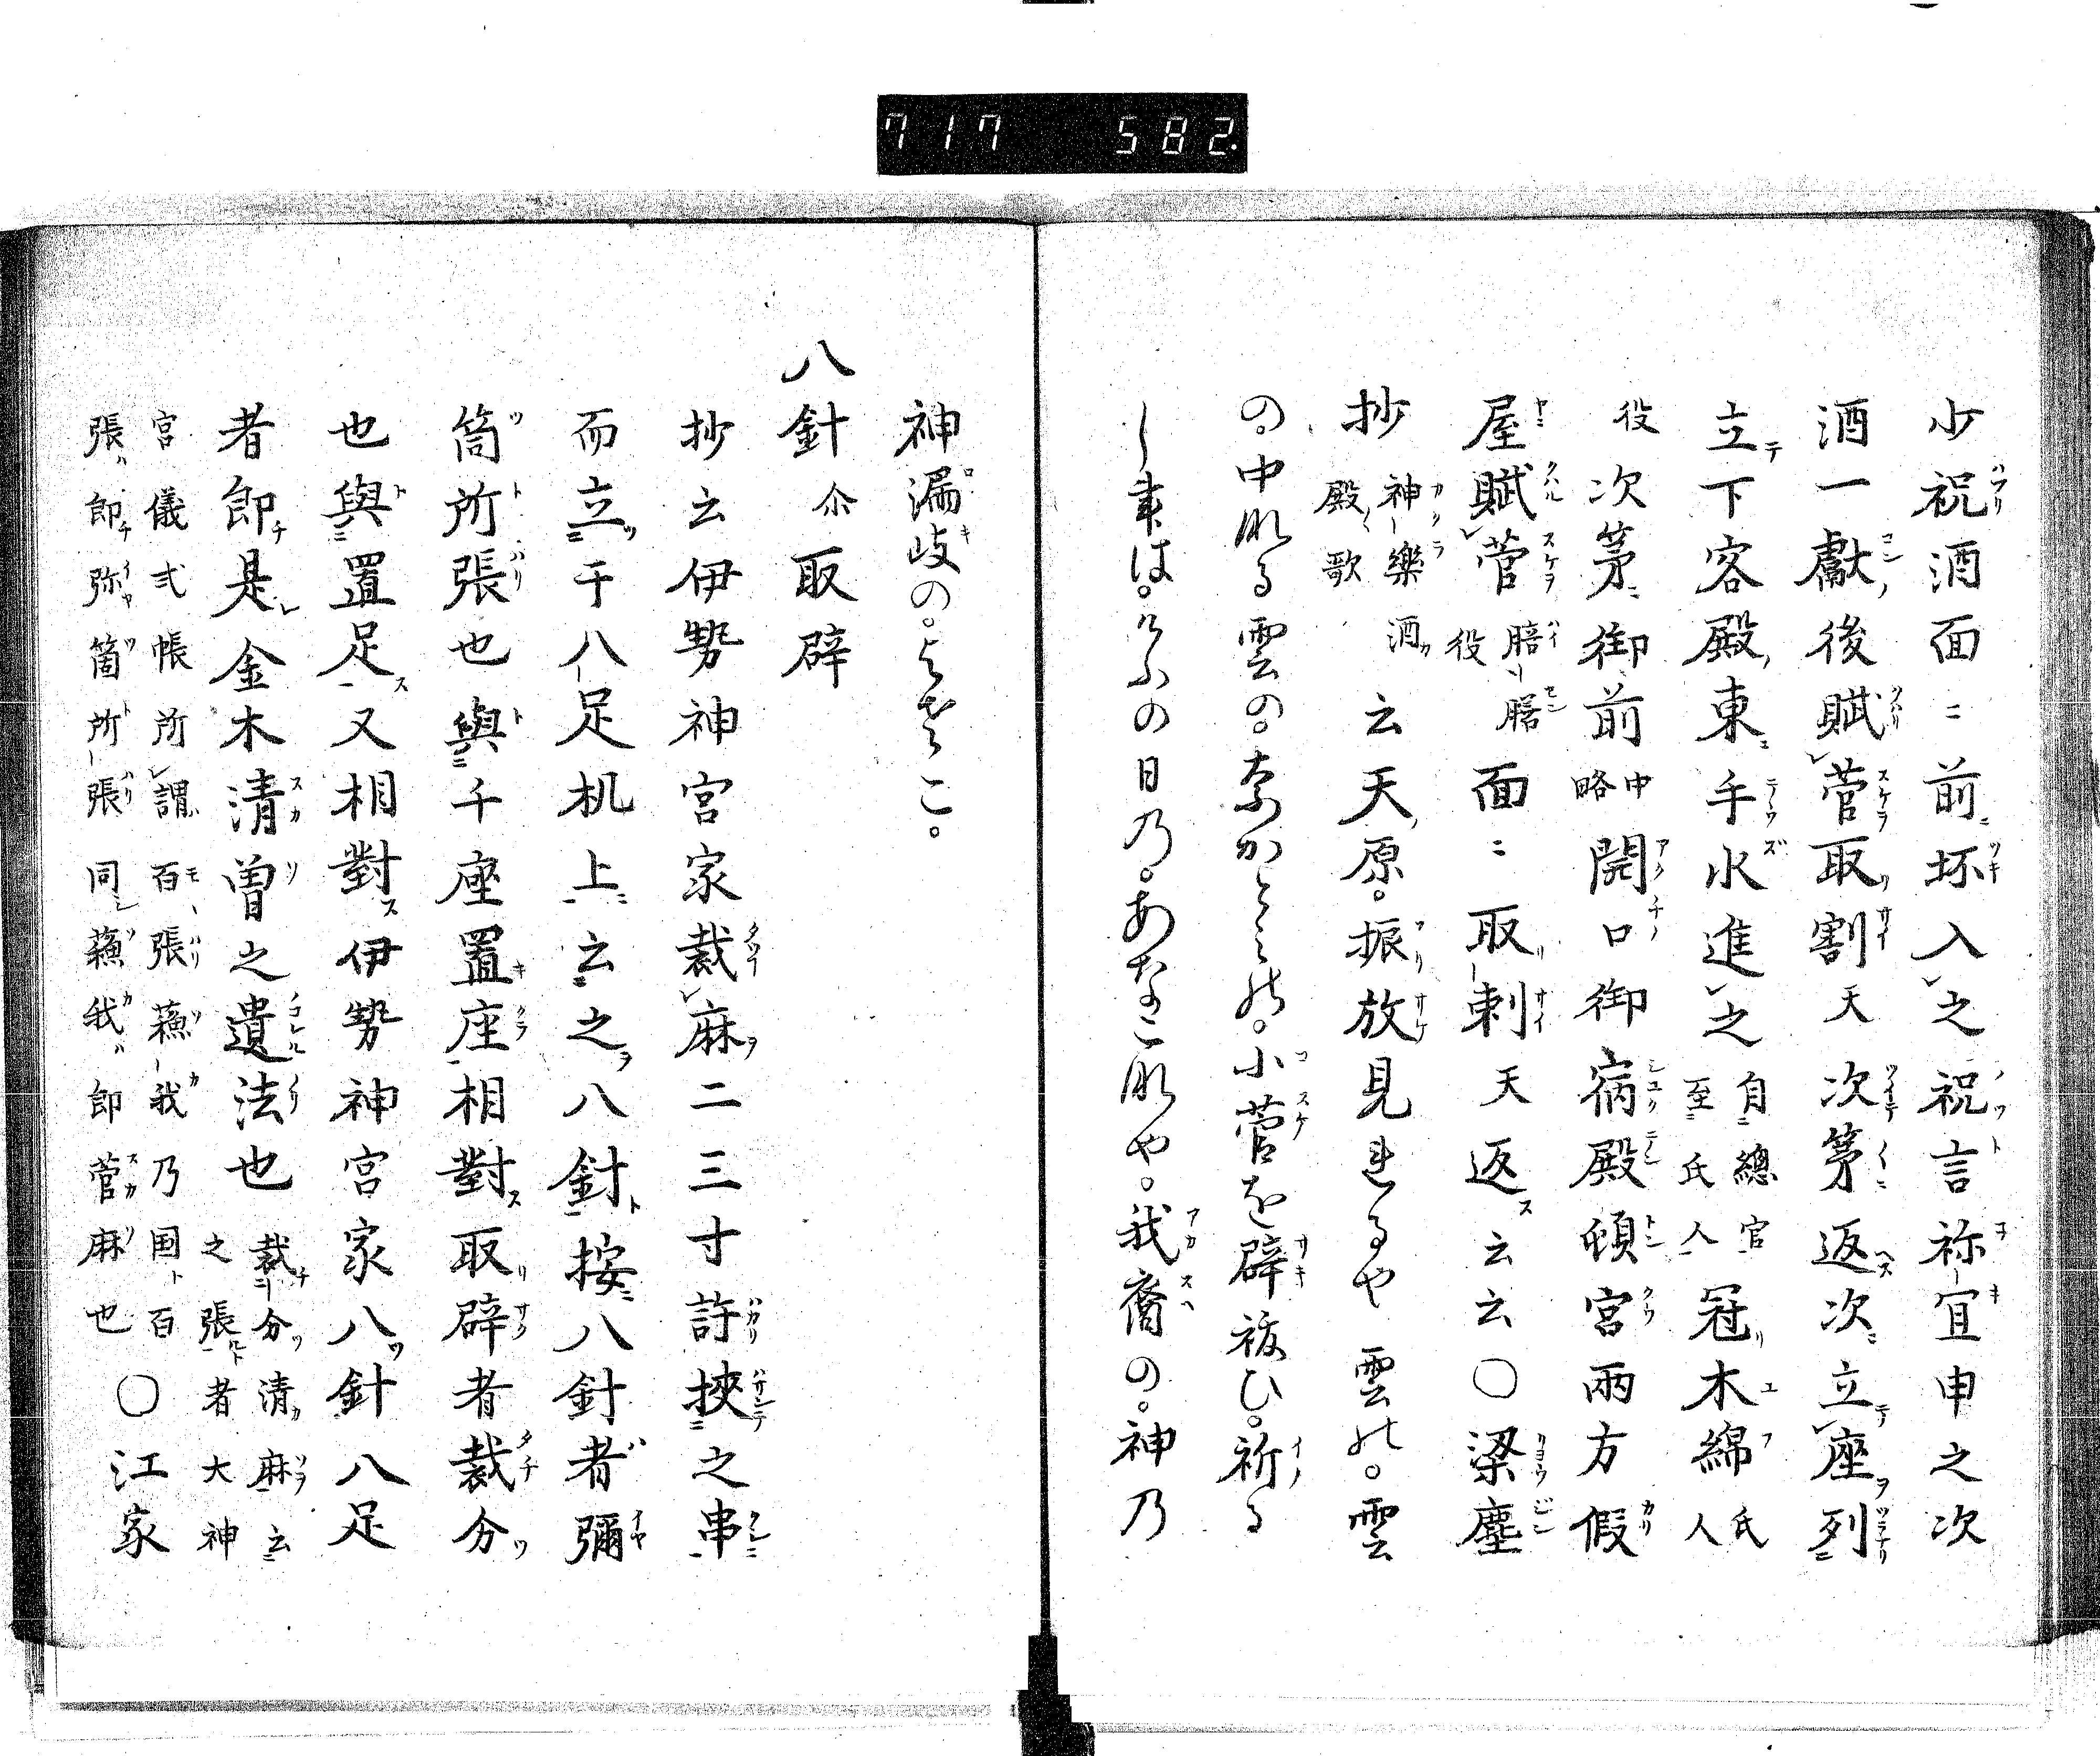 717 582.
少祝酒面ニ前坏入之祝言祢宜申之次
酒一獻後賦菅取割天次第返次立座列
立下客殿東手水進之自總官至氏人冠木綿氏人
役次第御前中略開口御宿殿頓宮兩方假
屋賦菅膳役面ニ取刺天返云云〇梁塵
抄神樂酒殿歌云天原。振放見れるや雲の。雲
の。中なる雲の。小菅を辟祓ひ。祈る
し事は。けふの日乃。あなこなや。我裔の。神乃
神漏岐の。よさこ。
八針尒取辟
抄云伊勢神宮家裁麻二三寸許挾之串
而立于八足机上云之八針按八針者彌
箇所張也與千座置座相對取辟者裁分
也與置足又相對伊勢神宮家八針八足
者即是金木清曽之遺法也裁分清麻云之張者大神
宮儀式帳所謂百張蘓我乃国百
張即弥箇所張同蘓我即菅麻也〇江家